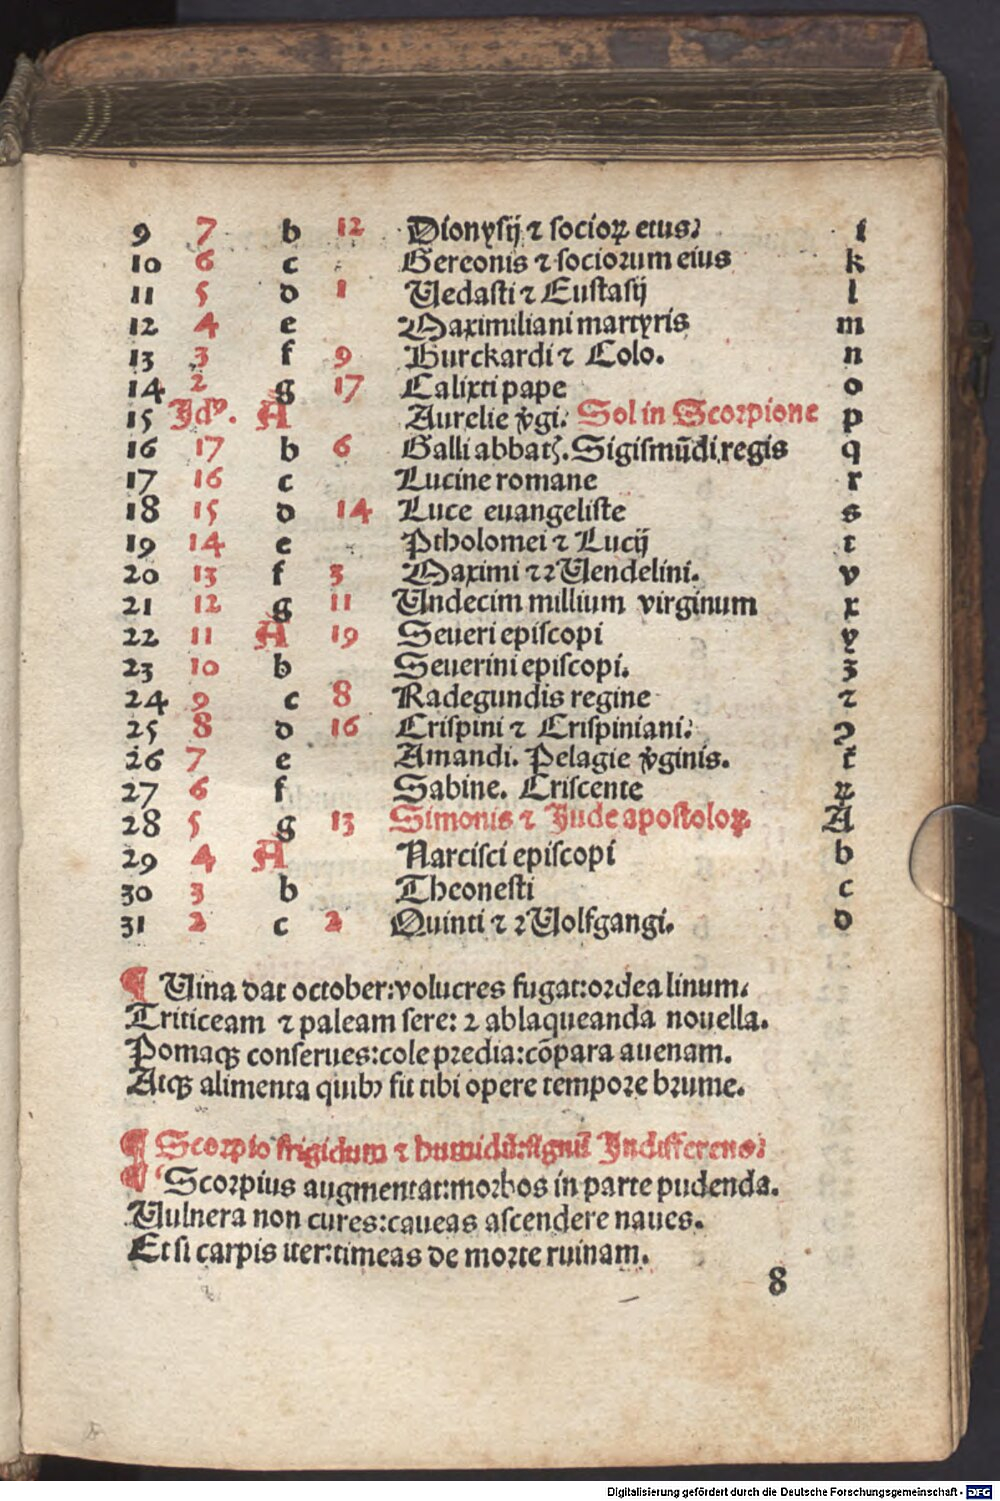 9 7 b 12 Dionysij ⁊ socioꝝ eius: i
10 6 c Gereonis ⁊ sociorum eius k
11 5 d 1 Uedasti ⁊ Eustasij l
12 4 e Maximiliani martyris m
13 3 f 9 Burckardi ⁊ Colo. n
14 2 g 17 Calixti pape o
15 Idꝰ. A Aurelie v̄gi. Sol in Scorpione p
16 17 b 6 Galli abbatꝭ. Sigismūdi regis q
17 16 c Lucine romane r
18 15 d 14 Luce euangeliste s
19 14 e Ptholomei ⁊ Lucij t
20 13 f 3 Maximi ⁊ Wendelini. v
21 12 g 11 Undecim millium virginum x
22 11 A 19 Seueri episcopi y
23 10 b Seuerini episcopi. z
24 9 c 8 Radegundis regine ⁊
25 8 d 16 Crispini ⁊ Crispiniani: ꝯ
26 7 e Amandi. Pelagie v̄ginis. t
27 6 f Sabine. Criscente ꝝ
28 5 g 13 Simonis ⁊ Jude apostoloꝝ A
29 4 A Narcisci episcopi b
30 3 b Theonesti c
31 2 c 2 Quinti ⁊ Wolfgangi. d
¶ Uina dat october: volucres fugat: ordea linum:
Triticeam ⁊ paleam sere: ⁊ ablaqueanda nouella.
Pomaqꝫ conserues: cole predia: cōpara auenam.
Atqꝫ alimenta quibꝰ fit tibi opere tempore brume.
¶ Scorpio frigidum ⁊ humidū: signū Indifferens:
¶ Scorpius augmentat: morbos in parte pudenda.
Uulnera non cures: caueas ascendere naues.
Et si carpis iter: timeas de morte ruinam.
8
Digitalisierung gefördert durch die Deutsche Forschungsgemeinschaft - DFG